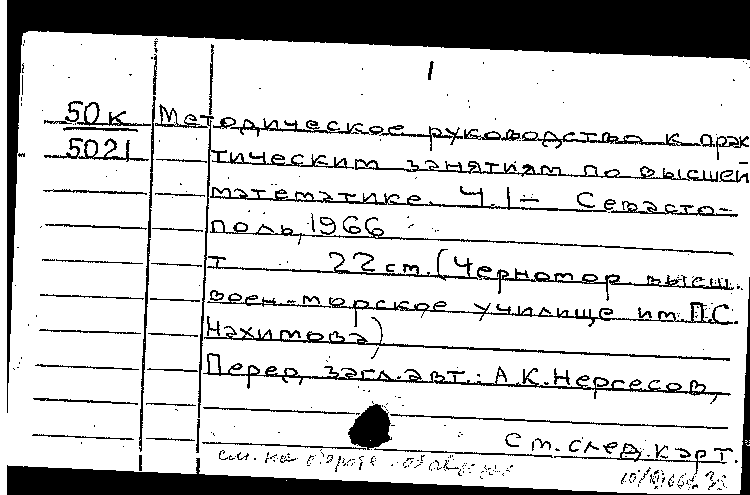 1
50к Методическое руководство к прак
5021 тическим занятиям по высшей
математике. Ч.1- Севасто-
поль, 1966
т 22 см. (Черномор высш.
воен.-морское училище им. П.С.
Нахимова)
Перед загл. авт.: А.К. Нерсесов,
см. след. карт.
см. на обороте